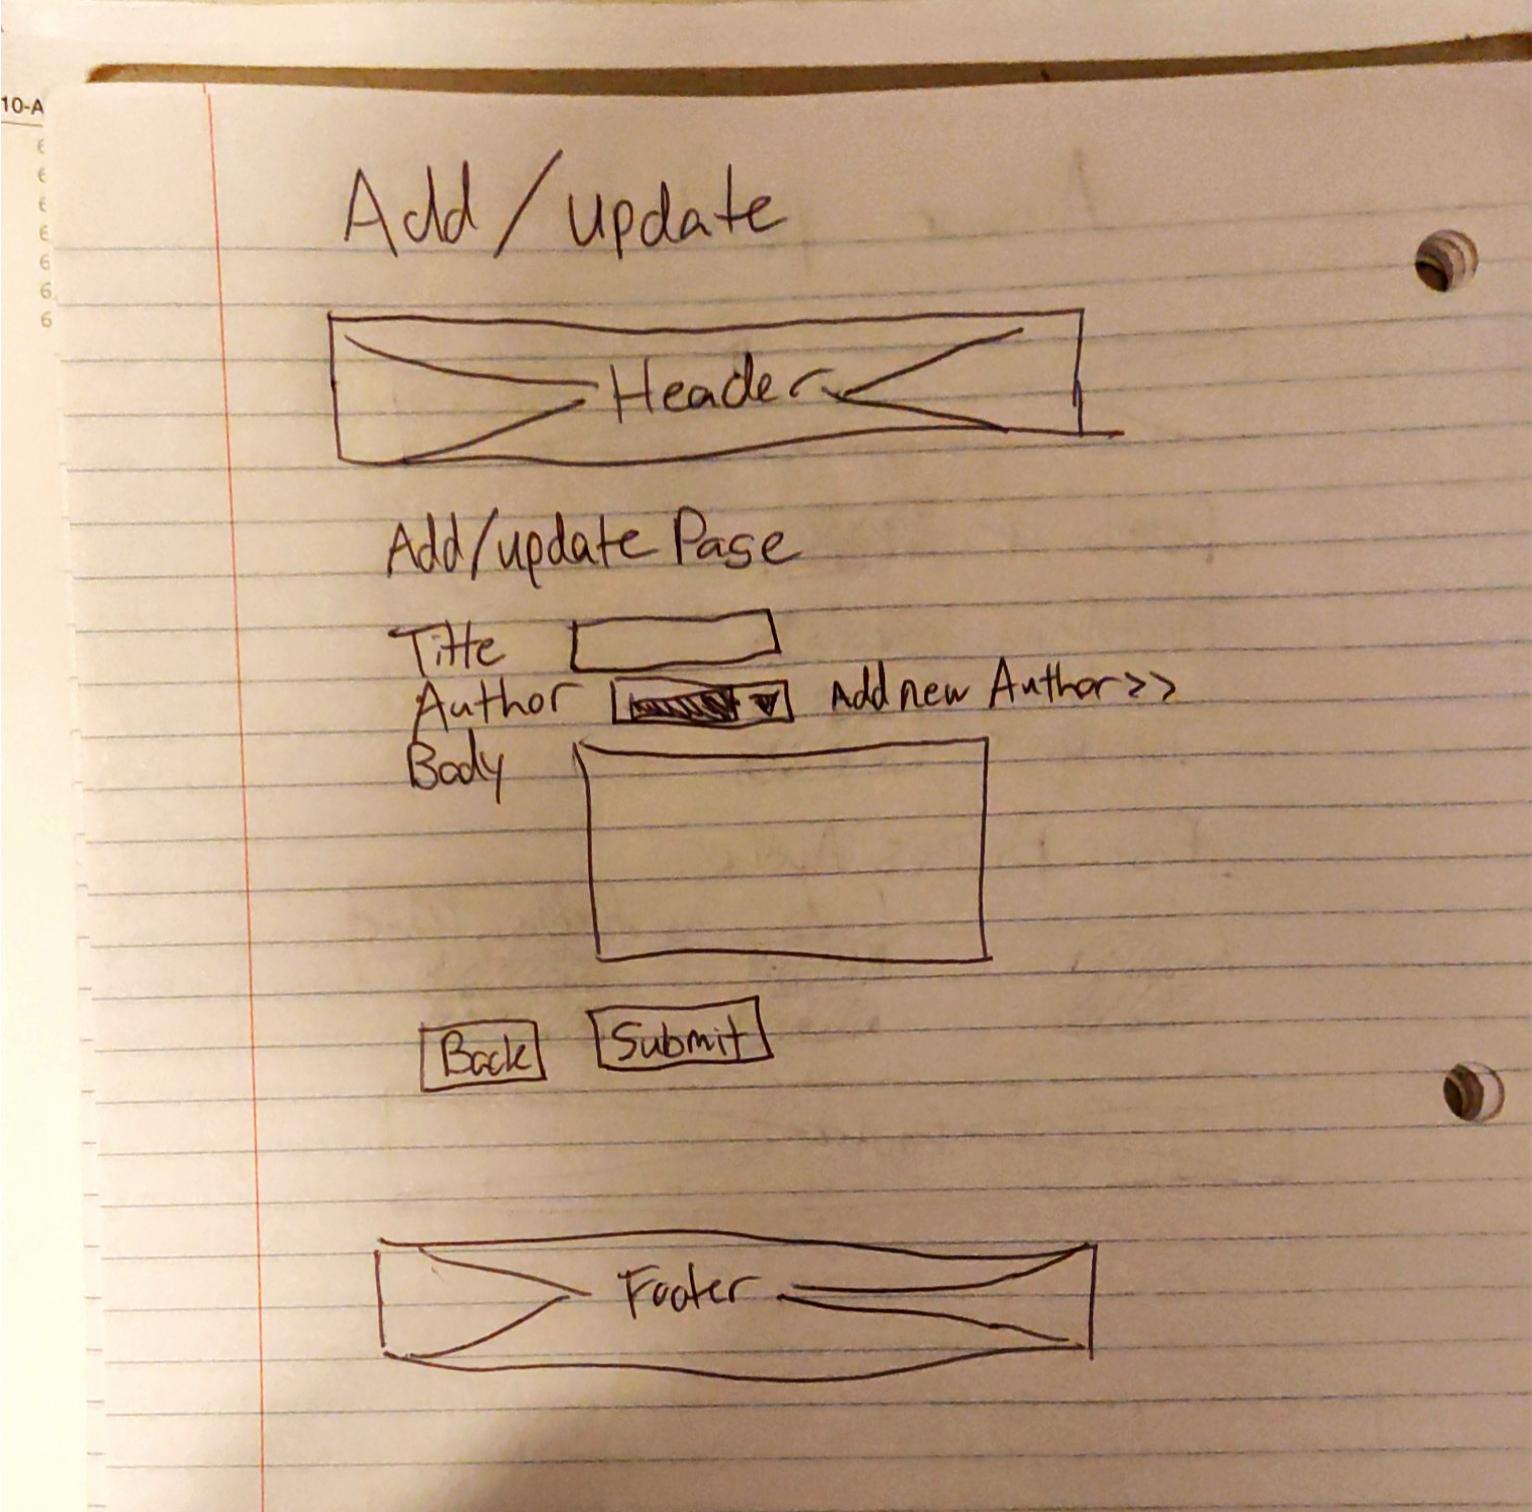 10-A
6
6
6
6
6
6
6
Add/update
Header
Add/update Page
Title
Author Add new Author>>
Body
Back Submit
Footer